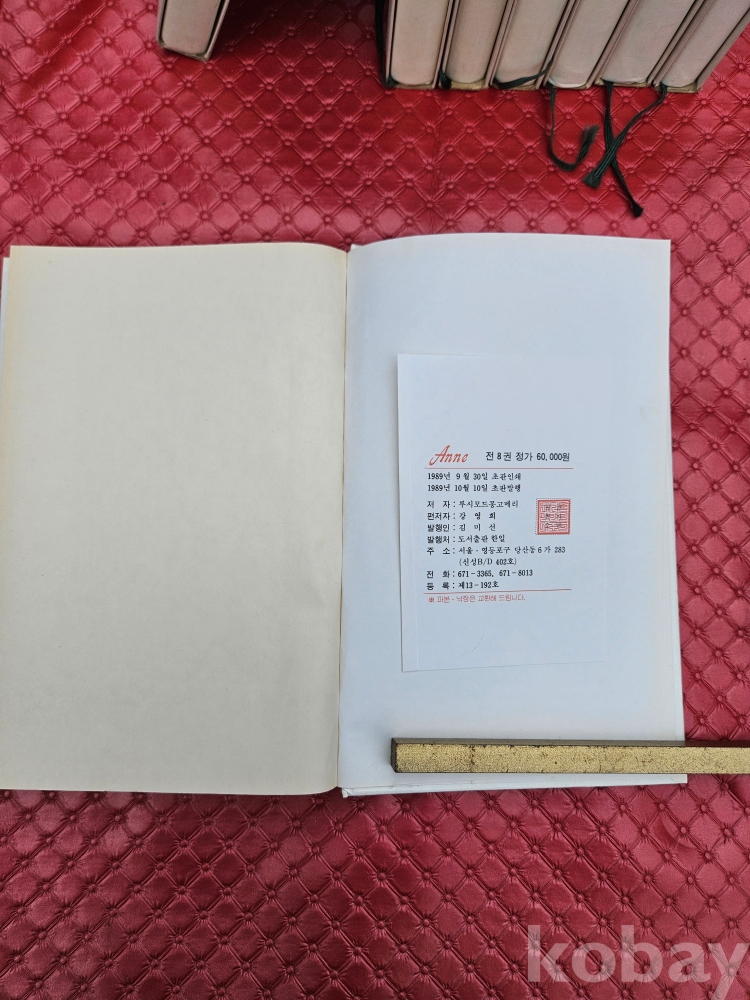 Anne 전 8 권 정가 60,000원
1989년 9 월 30일 초판인쇄
1989년 10월 10일 초판발행
저 자 : 루시모드몽고메리
편저자 : 강 영 희
발행인 : 김 미 선
발행처 : 도서출판 한일
주 소 : 서울·영등포구 당산동 6 가 283
(신성B/D 402호)
전 화 : 671-3365, 671-8013
등 록 : 제13-192호
파본·낙장은 교환해 드립니다.
kobay